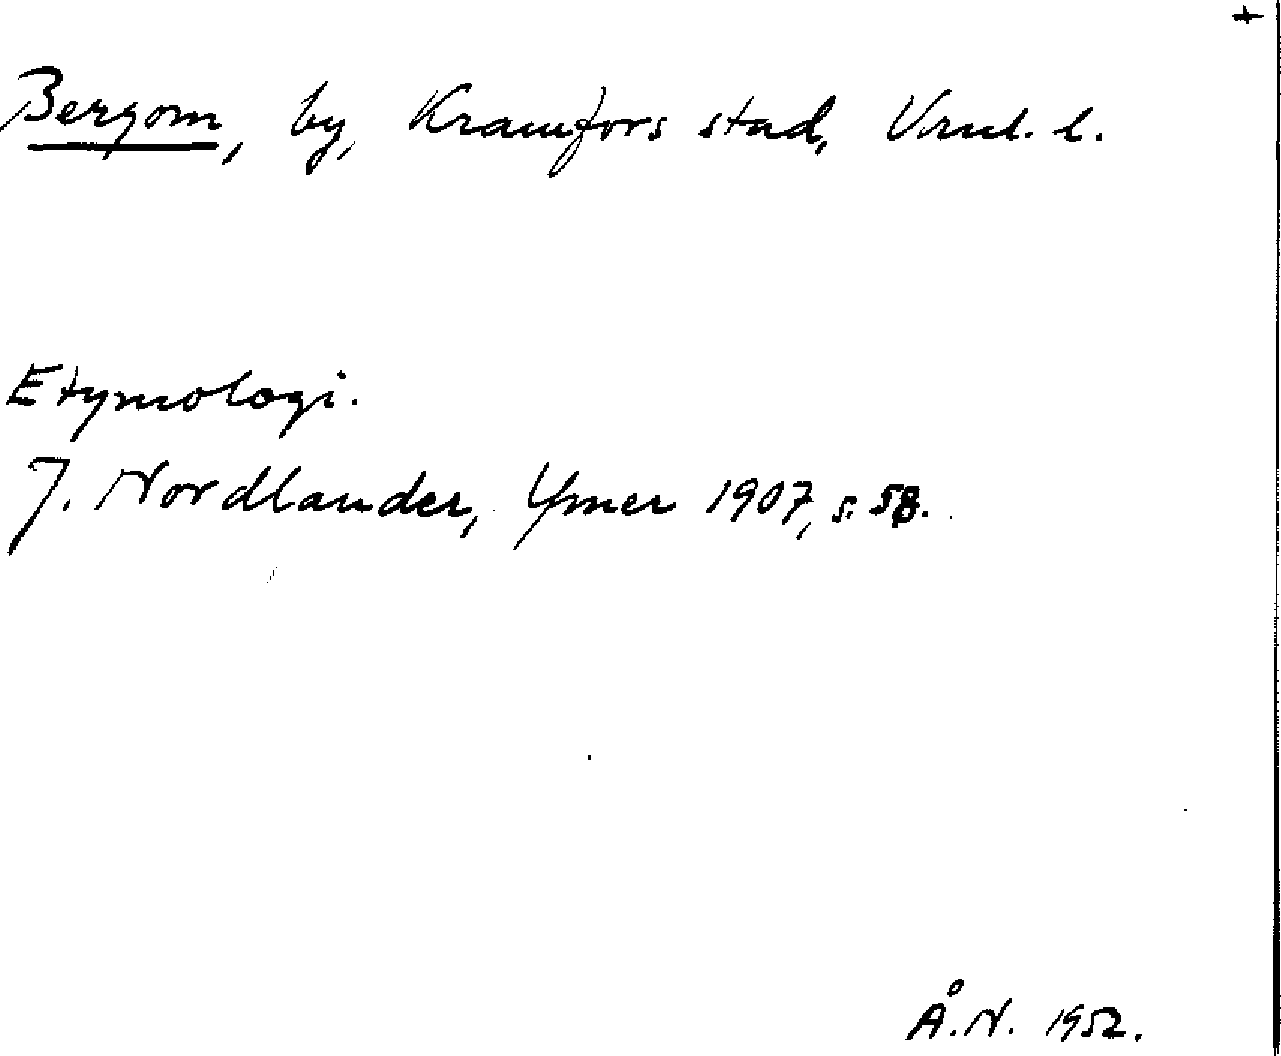 +
Bergom, by, Kramfors stad, Vnl. l.
Etymologi.
J. Nordlander, Ymer 1907, s. 58.
Å.N. 1952.